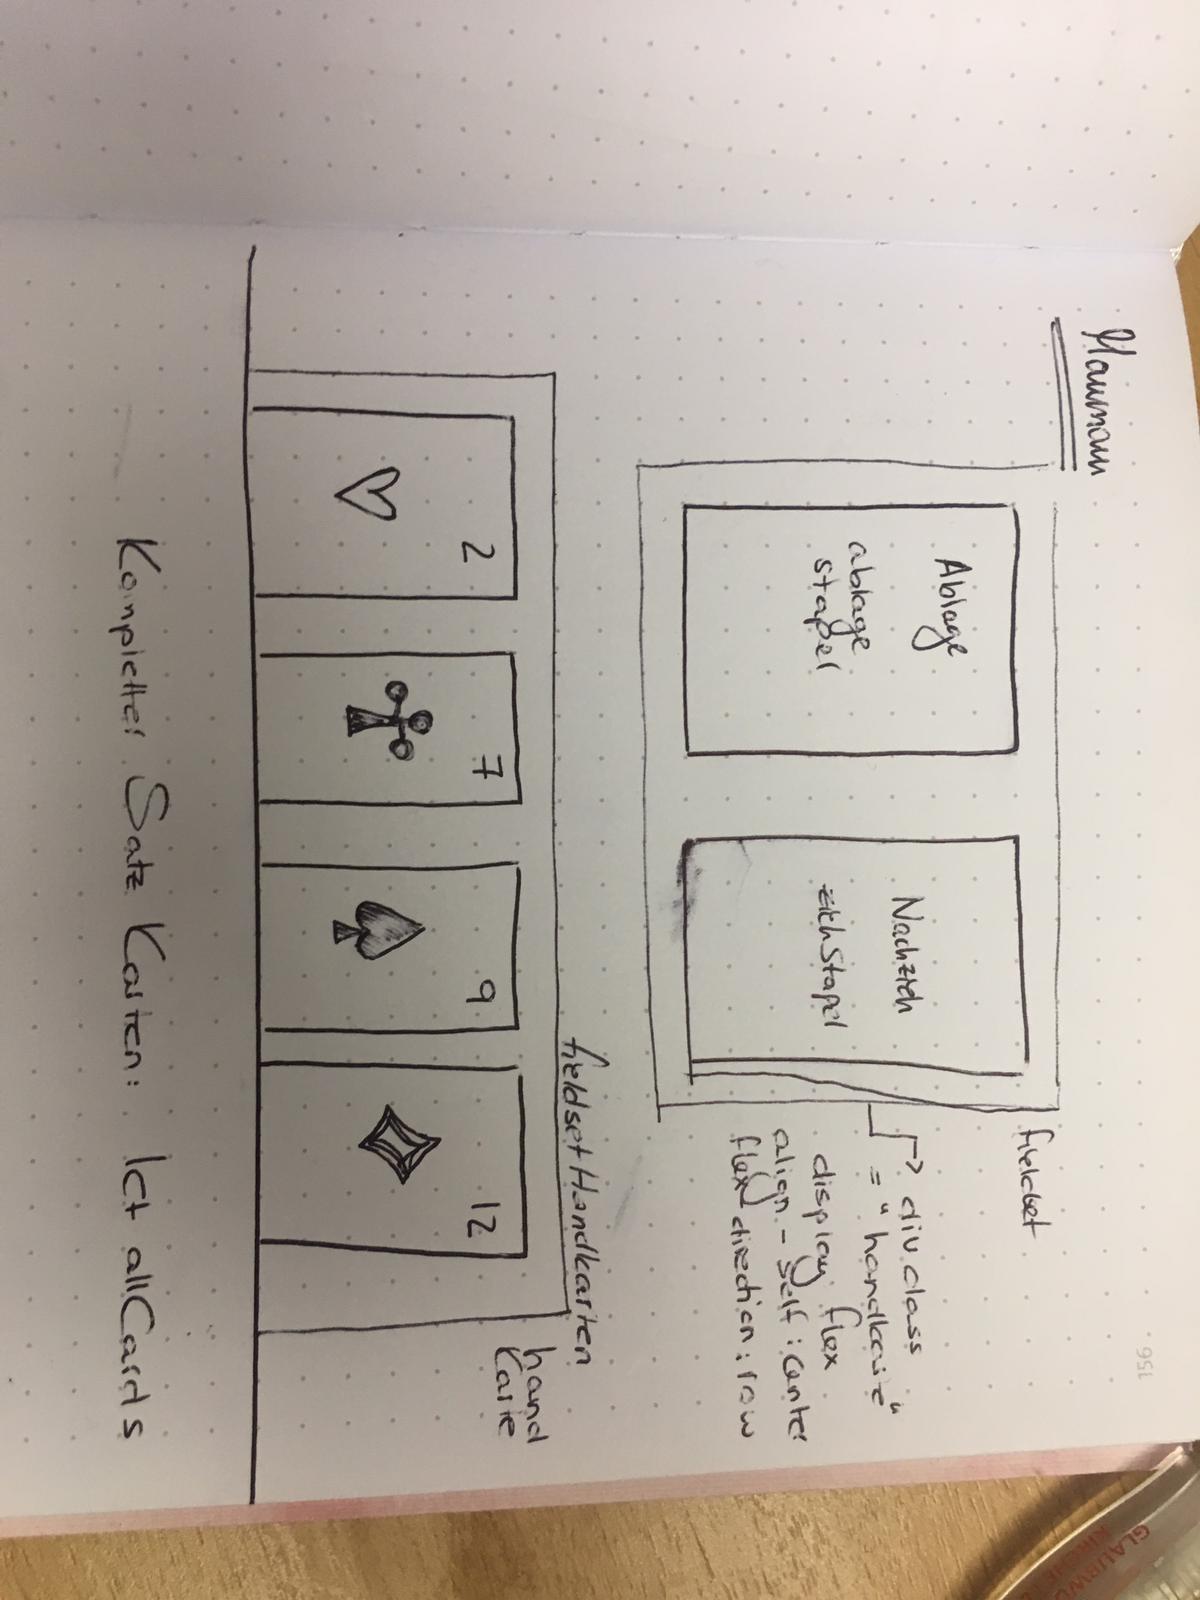 Maumau
Ablage
ablage
stapel
Nachzieh
ziehStapel
fieldset
div.class
= "handkarte"
display: flex
align-self: center
flex direction: row
fieldset Handkarten
hand
Karte
2
7
9
12
Kompletter Satz Karten: let allCards
156